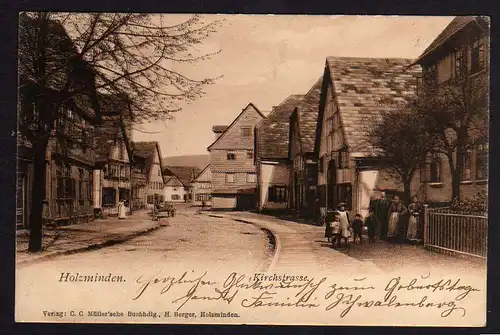 Holzminden.
Kirchstrasse.
Herzlichen Glückwunsch zum Geburtstage
sandt Familie Schwalenberg
Verlag: C. C. Müller'sche Buchhdlg., H. Berger, Holzminden.